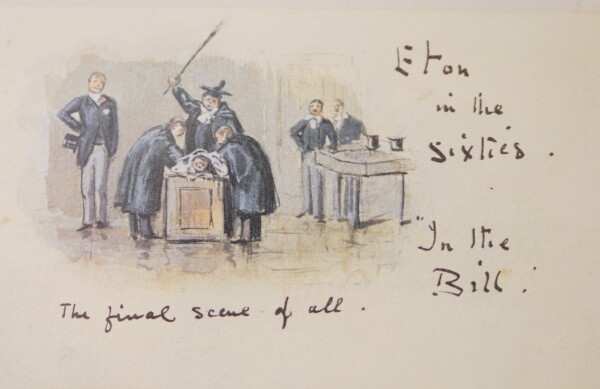 Eton
in the
Sixties.
"In the
Bill."
The final scene of all.